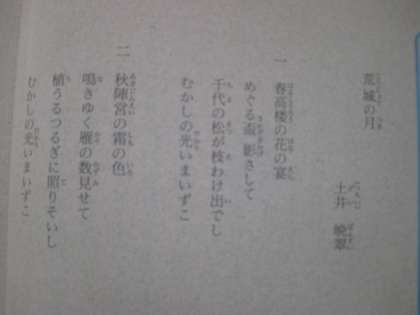 荒城の月
土井 晩翠
一
春高楼の花の宴
めぐる盃 影さして
千代の松が枝わけ出でし
むかしの光いまいずこ
二
秋陣営の霜の色
鳴きゆく雁の数見せて
植うるつるぎに照りそいし
むかしの光いまいずこ